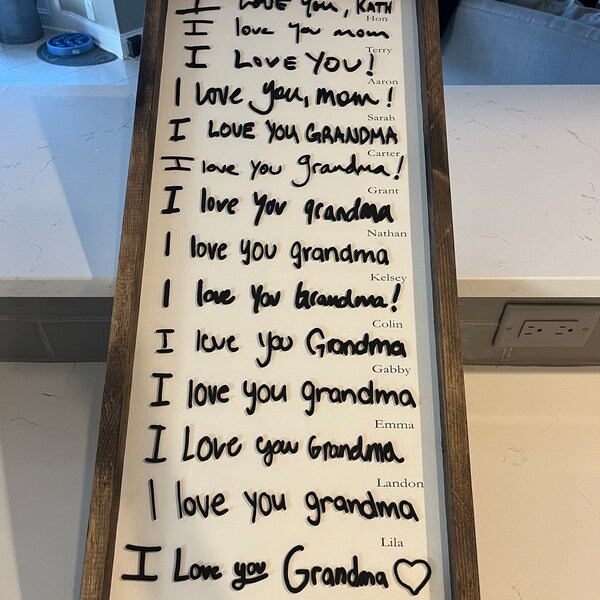 I LOVE YOU, KATH
Hon
I love you mom
Terry
I LOVE YOU!
Aaron
I love you, mom!
Sarah
I LOVE YOU GRANDMA
Carter
I love you grandma!
Grant
I love you grandma
Nathan
I love you grandma
Kelsey
I love you Grandma!
Colin
I love you Grandma
Gabby
I love you grandma
Emma
I Love you Grandma
Landon
I love you grandma
Lila
I Love you Grandma